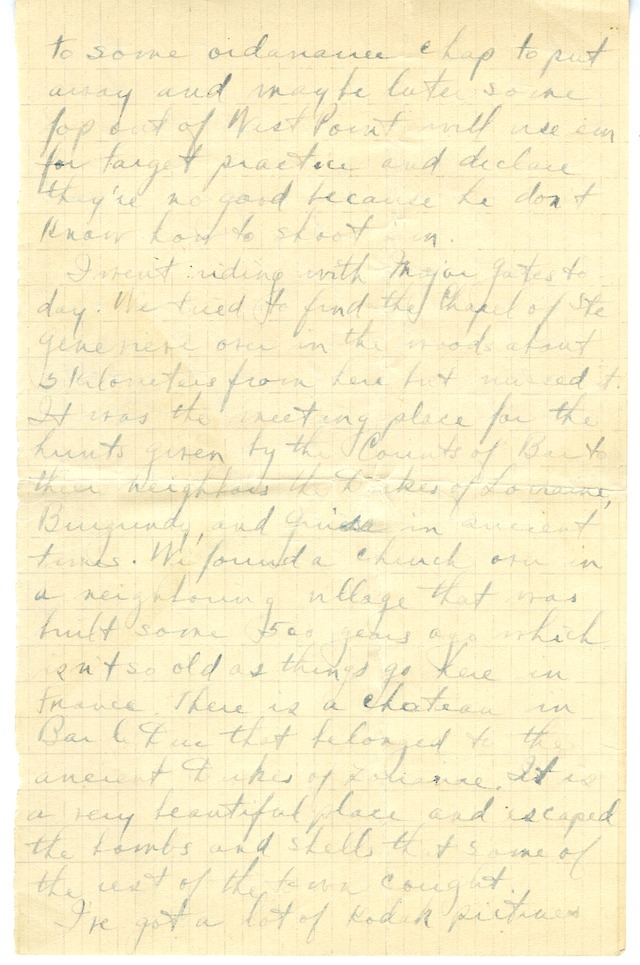 to some ordanance chap to put
away and maybe later some
fop out of West Point will use em
for target practice and declare
they're no good because he don't
know how to shoot em.
I went riding with Major Gates to
day. We tried to find the Chapel of Ste
Genevieve over in the woods about
5 Kilometers from here but missed it.
It was the meeting place for the
hunts given by the Counts of Bar to
their neighbors the Dukes of Lorraine,
Burgundy, and Guise in ancient
times. We found a church over in
a neighboring village that was
built some 500 years ago which
isn't so old as things go here in
France. There is a chateau in
Bar le Duc that belonged to the
ancient Dukes of Loriane. It is
a very beautiful place and escaped
the bombs and shells that some of
the rest of the town caught.
I've got a lot of Kodak pictures